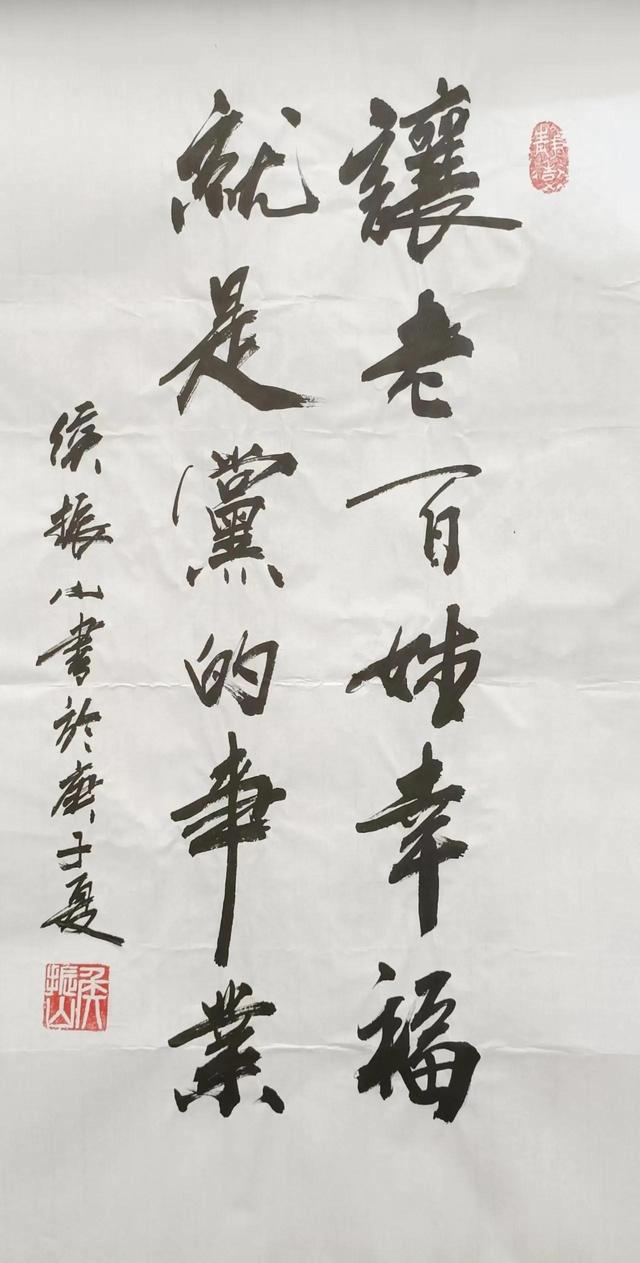 讓老百姓幸福
就是黨的事業
侯振山書於庚子夏
侯振山